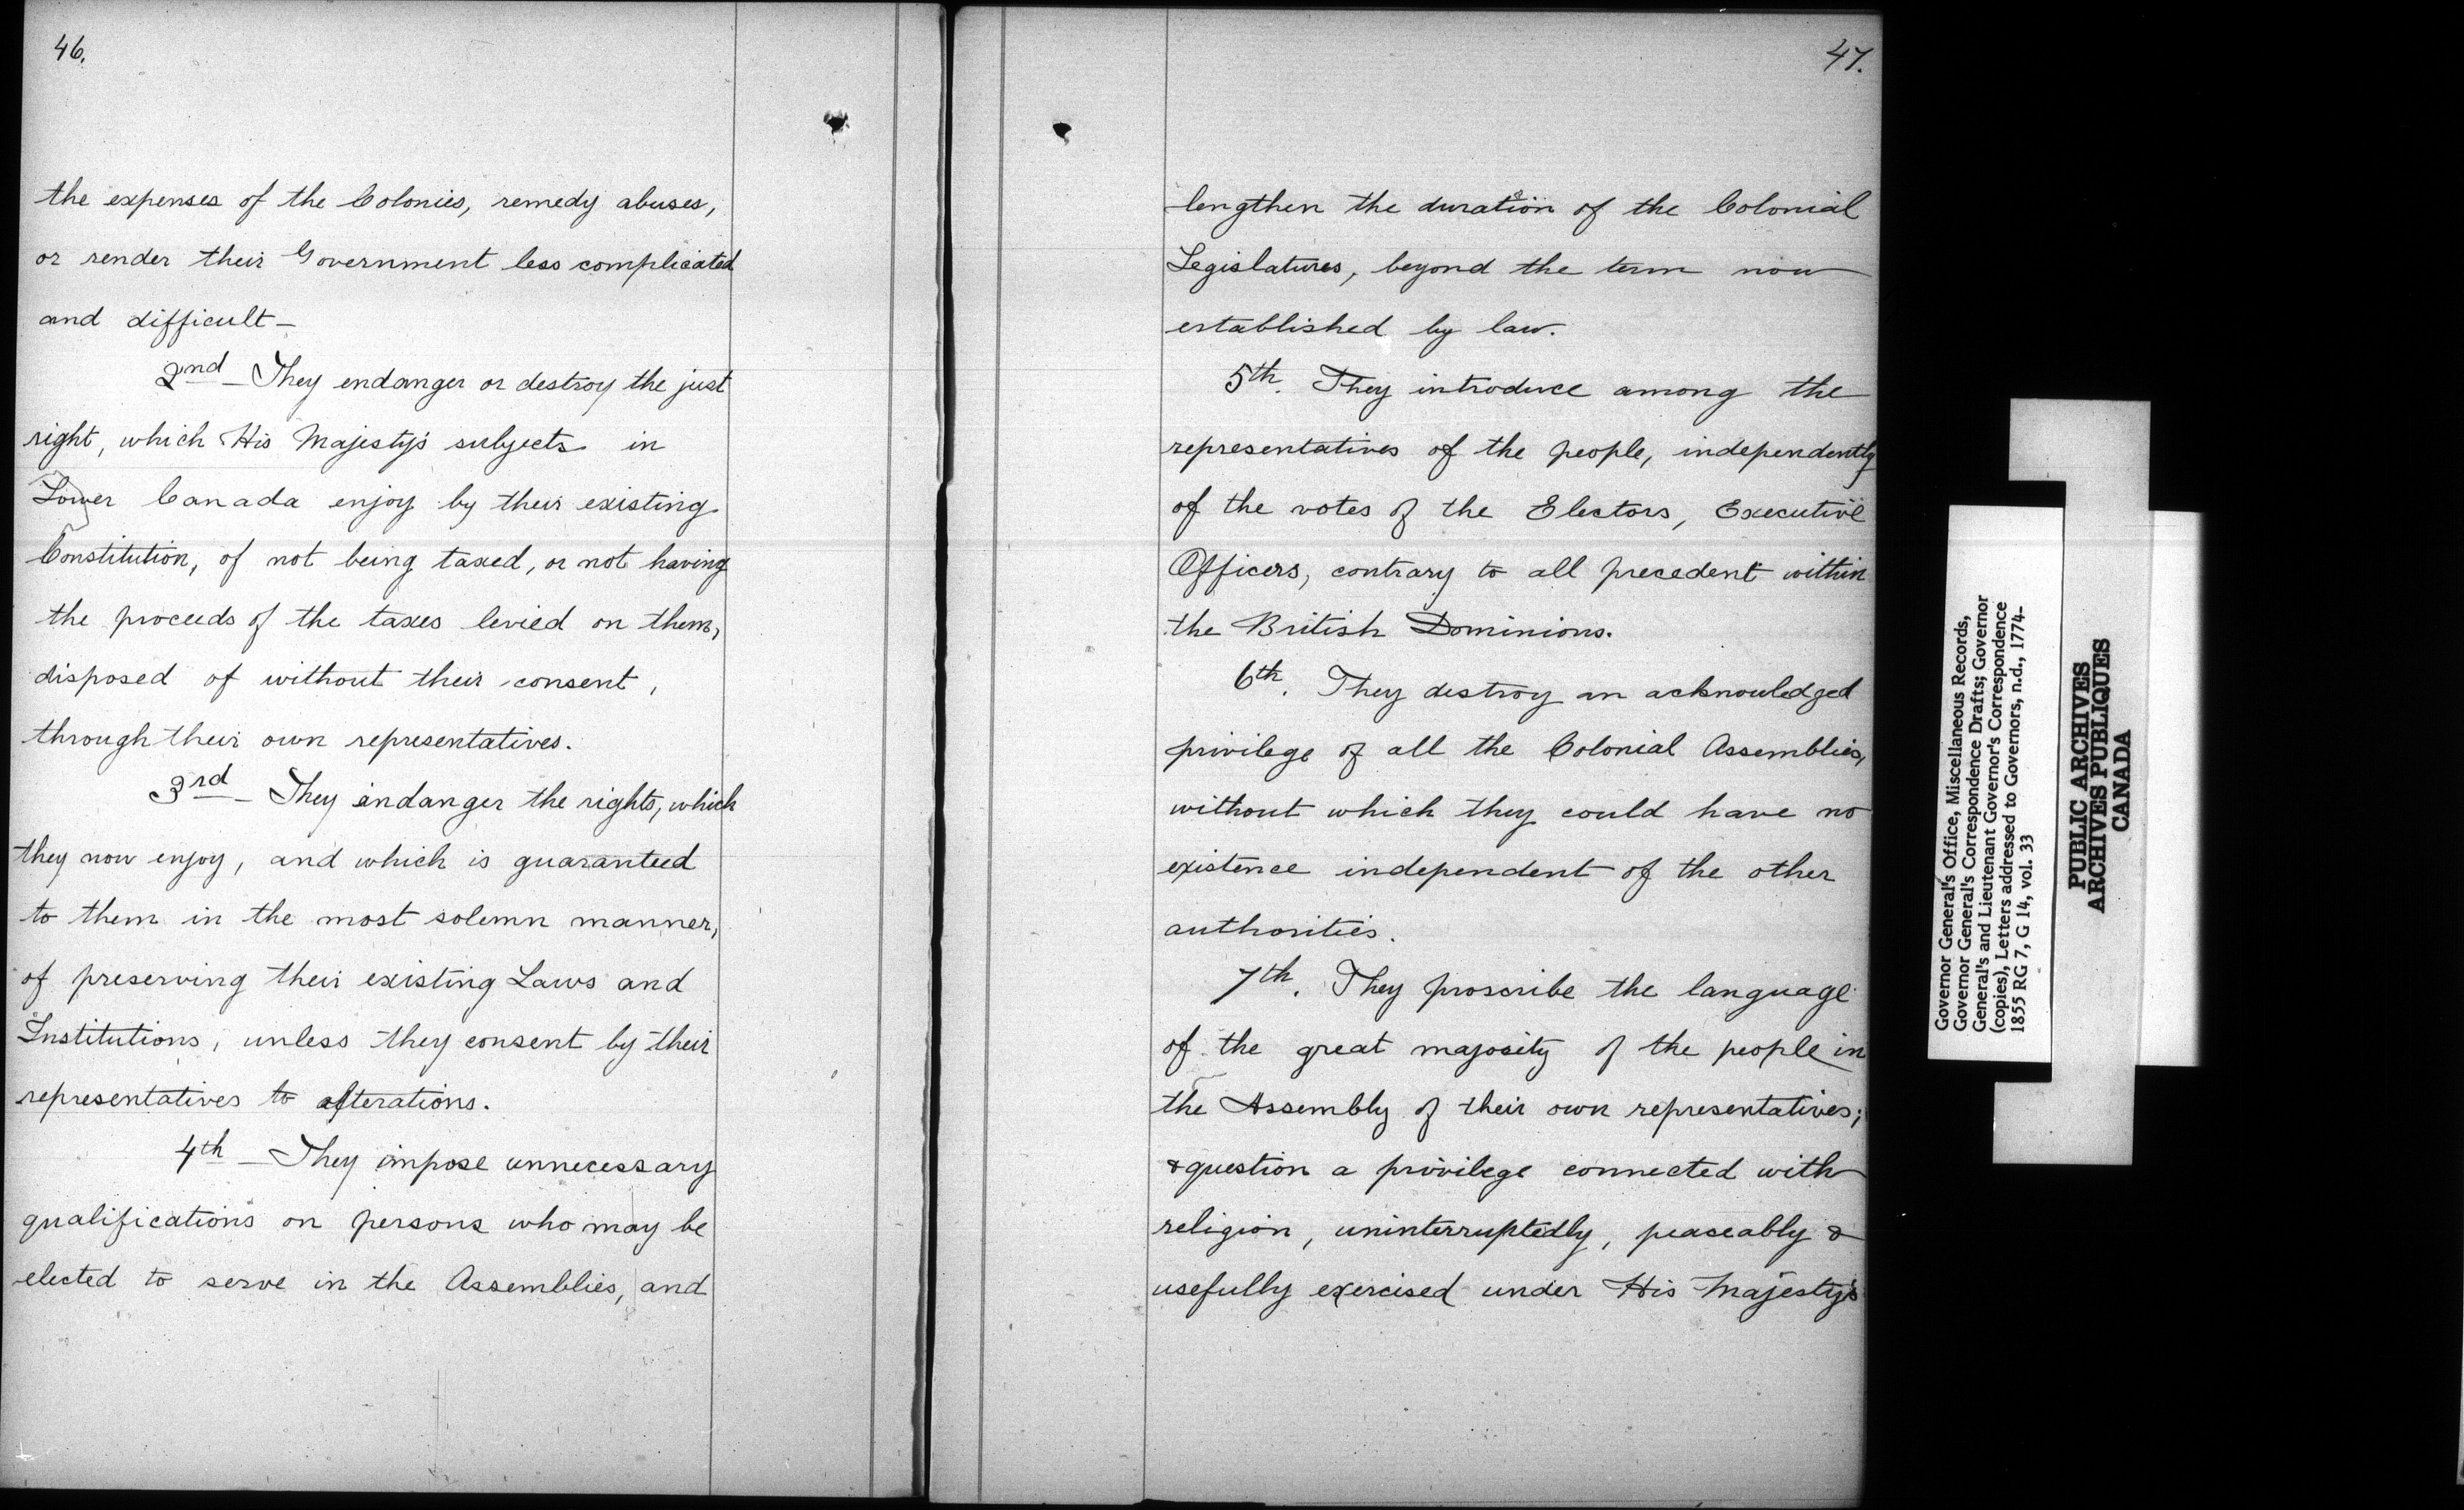 46.
the expenses of the Colonies, remedy abuses,
or render their Government less complicated
and difficult –
2nd – They endanger or destroy the just
right, which His Majesty's subjects in
Lower Canada enjoy by their existing
Constitution, of not being taxed, or not having
the proceeds of the taxes levied on them,
disposed of without their consent,
through their own representatives.
3rd – They endanger the rights, which
they now enjoy, and which is guaranteed
to them in the most solemn manner,
of preserving their existing Laws and
Institutions, unless they consent by their
representatives to alterations.
4th – They impose unnecessary
qualifications on persons who may be
elected to serve in the Assemblies, and
47.
lengthen the duration of the Colonial
Legislatures, beyond the term now
established by law.
5th. They introduce among the
representatives of the people, independently
of the votes of the Electors, Executive
Officers, contrary to all precedent within
the British Dominions.
6th. They destroy an acknowledged
privilege of all the Colonial Assemblies,
without which they could have no
existence independent of the other
authorities.
7th. They proscribe the language
of the great majority of the people in
the Assembly of their own representatives;
& question a privilege connected with
religion, uninterruptedly, peaseably &
usefully exercised under His Majesty's
Governor General's Office, Miscellaneous Records,
Governor General's Correspondence Drafts; Governor
General's and Lieutenant Governor's Correspondence
(copies), Letters addressed to Governors, n.d., 1774-
1855 RG 7, G 14, vol. 33
PUBLIC ARCHIVES
ARCHIVES PUBLIQUES
CANADA